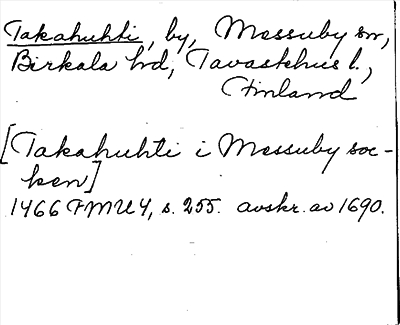 Takahuhti, by, Messuby sn,
Birkala hd, Tavastehus l.,
Finland
[Takahuhti i Messuby soc-
ken]
1466 FMU 4, s. 255. avskr. av 1690.